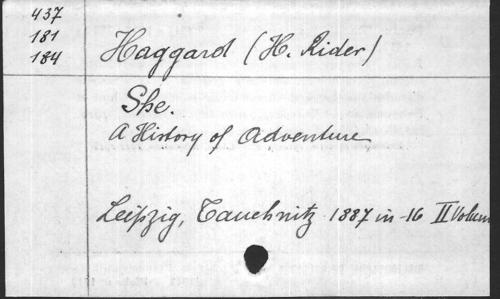 437
181
184
Haggard (H. Rider)
She.
A History of Adventure
Leipzig, Tauchnitz 1887 in-16 II Volum